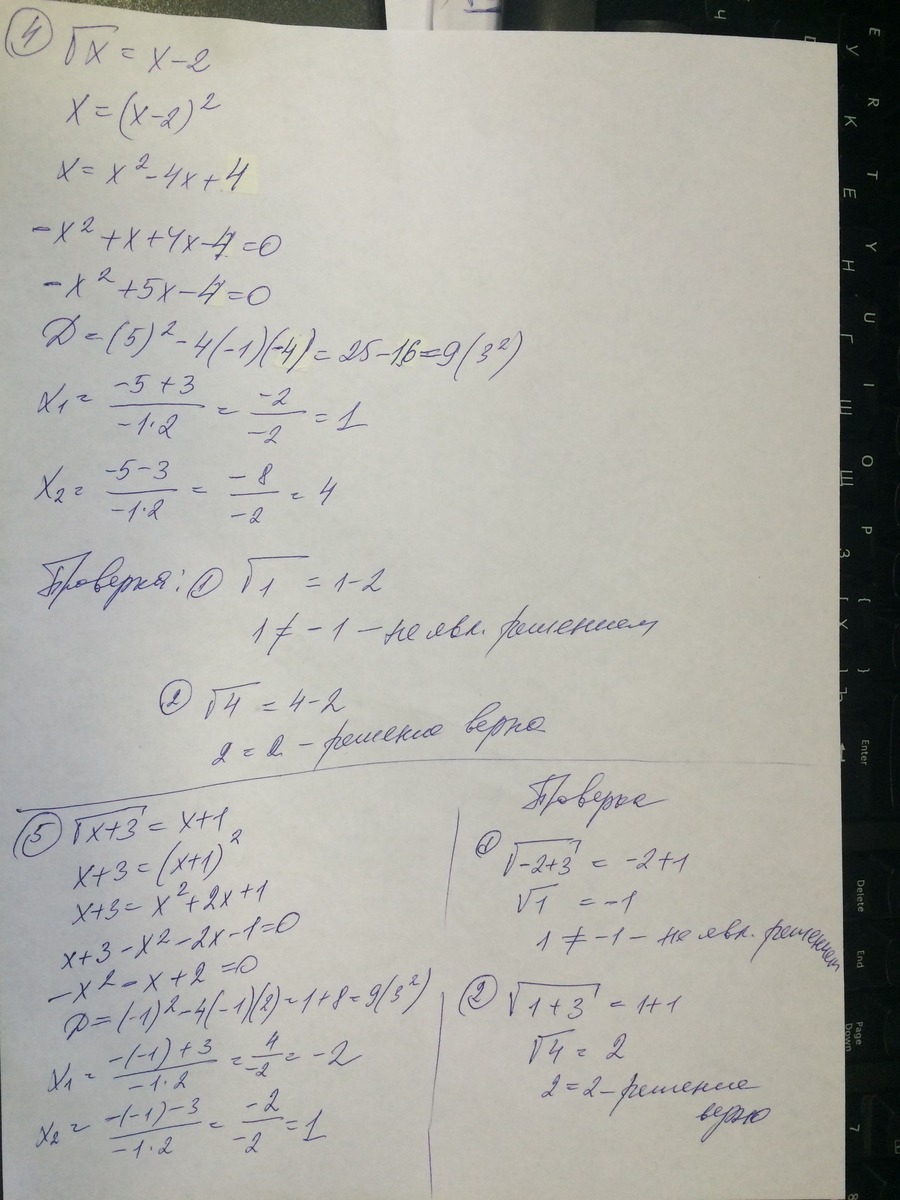 4 √x = x-2
x = (x-2)²
x = x² - 4x + 4
-x² + x + 4x - 4 = 0
-x² + 5x - 4 = 0
D = (5)² - 4(-1)(-4) = 25 - 16 = 9 (3²)
x₁ = (-5+3)/(-1·2) = -2/-2 = 1
x₂ = (-5-3)/(-1·2) = -8/-2 = 4
Проверка: 1 √1 = 1-2
1 ≠ -1 - не явл. решением
2 √4 = 4-2
2 = 2 - решение верно
5 √x+3 = x+1
x+3 = (x+1)²
x+3 = x² + 2x + 1
x+3-x²-2x-1=0
-x² - x + 2 = 0
D = (-1)² - 4(-1)(2) = 1+8 = 9 (3²)
x₁ = (-(-1)+3)/(-1·2) = 4/-2 = -2
x₂ = (-(-1)-3)/(-1·2) = -2/-2 = 1
Проверка
1 √-2+3 = -2+1
√1 = -1
1 ≠ -1 - не явл. решением
2 √1+3 = 1+1
√4 = 2
2=2 - решение
верно
E
R
T
Y
U
I
O
P
{
}
Enter
У
К
Е
Н
Г
Ш
Щ
З
Х
Ъ
Delete
End
Page
Down
7
8